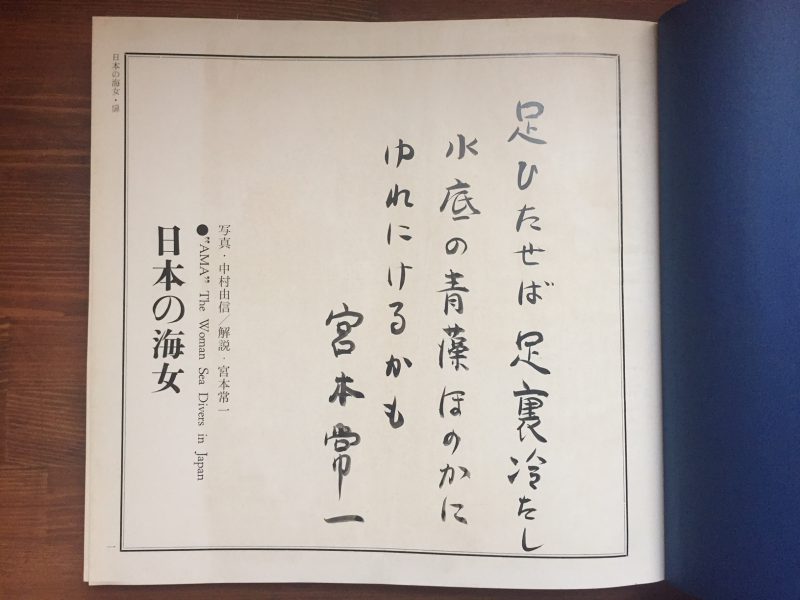 足ひたせば足裏冷たし
水底の青藻ほのかに
ゆれにけるかも
宮本常一
写真・中村由信／解説・宮本常一
●”AMA” The Woman Sea Divers in Japan
日本の海女
日本の海女・扉
一